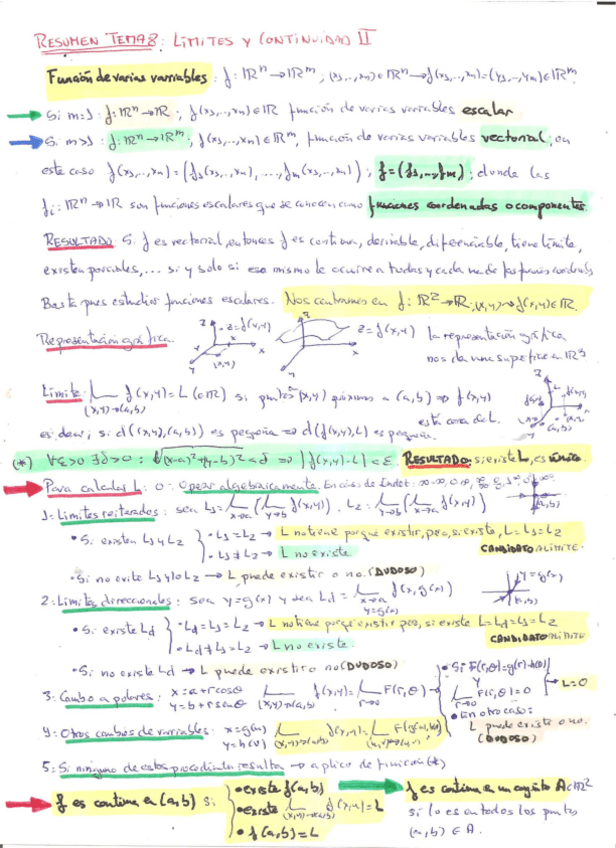 RESUMEN TEMA 8: LÍMITES Y CONTINUIDAD II
Función de varias variables: f: ℝⁿ → ℝᵐ; (x₁,..,xₙ) ∈ ℝⁿ → f(x₁,..,xₙ) = (y₁,..,yₘ) ∈ ℝᵐ
Si m=1: f: ℝⁿ → ℝ; f(x₁,..,xₙ) ∈ ℝ función de varias variables escalar
Si m>1: f: ℝⁿ → ℝᵐ; f(x₁,..,xₙ) ∈ ℝᵐ, función de varias variables vectorial; en
este caso f(x₁,..,xₙ) = (f₁(x₁,..,xₙ), ...., fₘ(x₁,..,xₙ)); f=(f₁,..,fₘ); donde las
fᵢ: ℝⁿ → ℝ son funciones escalares que se conocen como funciones coordenadas o componentes.
RESULTADO: Si f es vectorial, entonces f es continua, derivable, diferenciable, tiene límite,
existen parciales, ... si y solo si eso mismo le ocurre a todas y cada una de las funciones coordenadas
Basta pues estudiar funciones escalares. Nos centramos en f: ℝ² → ℝ; (x,y) → f(x,y) ∈ ℝ.
Representación gráfica
z z=f(x,y) x y (x,y)
z x y z=f(x,y)
la representación gráfica
nos da una superficie en ℝ³
Límite: Lim f(x,y) = L (∈ℝ) si puntos (x,y) próximos a (a,b) ⇒ f(x,y)
(x,y)→(a,b) está cerca de L.
es decir, si d((x,y),(a,b)) es pequeña ⇒ d(f(x,y),L) es pequeña.
(*) ∀ε>0 ∃δ>0 : √(x-a)²+(y-b)² < δ ⇒ |f(x,y)-L| < ε. RESULTADO: si existe L, es único.
Para calcular L: 0: Operar algebraicamente. En caso de Indet: ∞-∞, 0·∞,
1: Límites reiterados: sea L₁ = Lim x→a (Lim y→b f(x,y)), L₂ = Lim y→b (Lim x→a f(x,y))
• Si existen L₁ y L₂
• L₁=L₂ → L no tiene porque existir, pero, si existe, L=L₁=L₂
CANDIDATO A LÍMITE.
• L₁≠L₂ → L no existe
• Si no existe L₁ y/o L₂ → L puede existir o no. (DUDOSO)
2: Límites direccionales: sea y=g(x) y sea Ld = Lim x→a y=g(x) f(x,g(x))
y=g(x) (a,b)
• Si existe Ld
• Ld=L₁=L₂ → L no tiene porque existir pero, si existe L=Ld=L₁=L₂
CANDIDATO A LÍMITE
• Ld≠L₁=L₂ → L no existe.
• Si no existe Ld → L puede existir o no (DUDOSO)
3: Cambio a polares: x=a+r cosθ
y=b+r senθ
Lim (x,y)→(a,b) f(x,y) = Lim r→0 F(r,θ)
• Si F(r,θ)=g(r)·h(θ)
y
Lim r→0 F(r,θ)=0
→ L=0
• En otro caso:
L puede existir o no.
(DUDOSO)
4: Otros cambios de variables: x=g(u)
y=h(v)
Lim (x,y)→(a,b) f(x,y) = Lim
5: Si ninguno de estos procedimientos resulta → aplico definición (*)
f es continua en (a,b) si
• existe f(a,b)
• existe Lim (x,y)→(a,b) f(x,y)=L
• f(a,b)=L
f es continua en un conjunto A⊂ℝ²
si lo es en todos los puntos
(a,b) ∈ A.